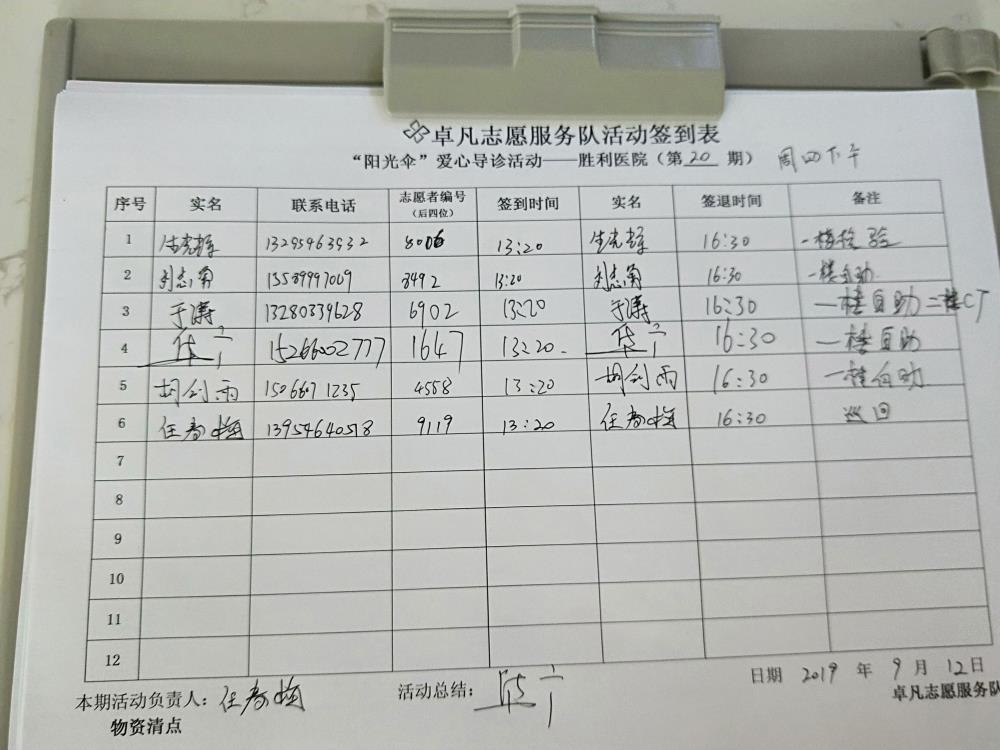 卓凡志愿服务队活动签到表
“阳光伞”爱心导诊活动——胜利医院（第 20 期） 周四下午
序号 实名 联系电话 志愿者编号（后四位） 签到时间 实名 签退时间 备注
1 13295463932 8006 13:20 16:30 一楼检验
2 刘志南 15589997069 8492 13:20 刘志南 16:30 一楼自助
3 于涛 13280339628 6902 13:20 于涛 16:30 一楼自助二楼CT
4 15266002777 1647 13:20 16:30 一楼自助
5 胡剑雨 1506671235 4558 13:20 胡剑雨 16:30 一楼自助
6 任春梅 13954640518 9119 13:20 任春梅 16:30 巡回
7
8
9
10
11
12
日期 2019 年 9 月 12日
本期活动负责人：任春梅 活动总结：
卓凡志愿服务队
物资清点